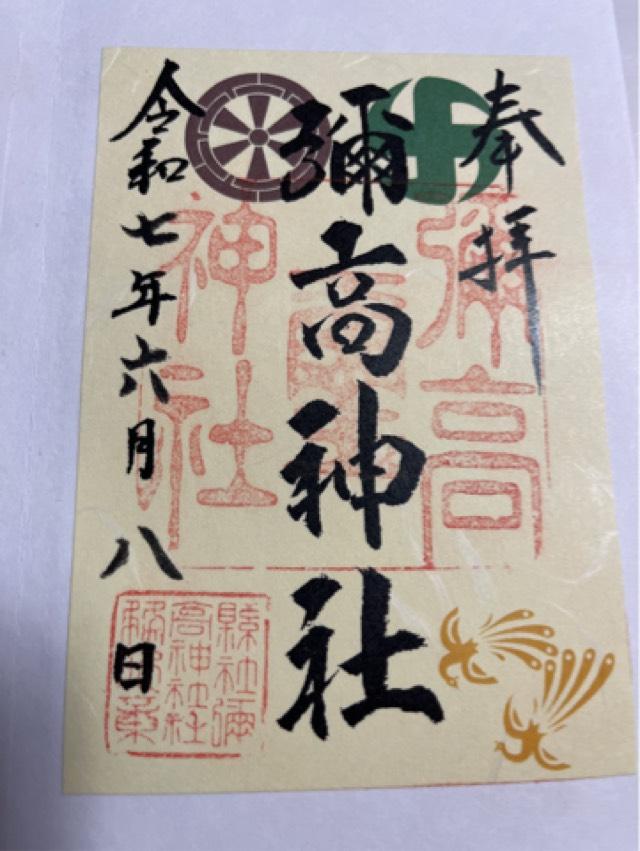 奉拝
彌高神社
令和七年六月八日
彌高
神社
縣社彌
高神社社